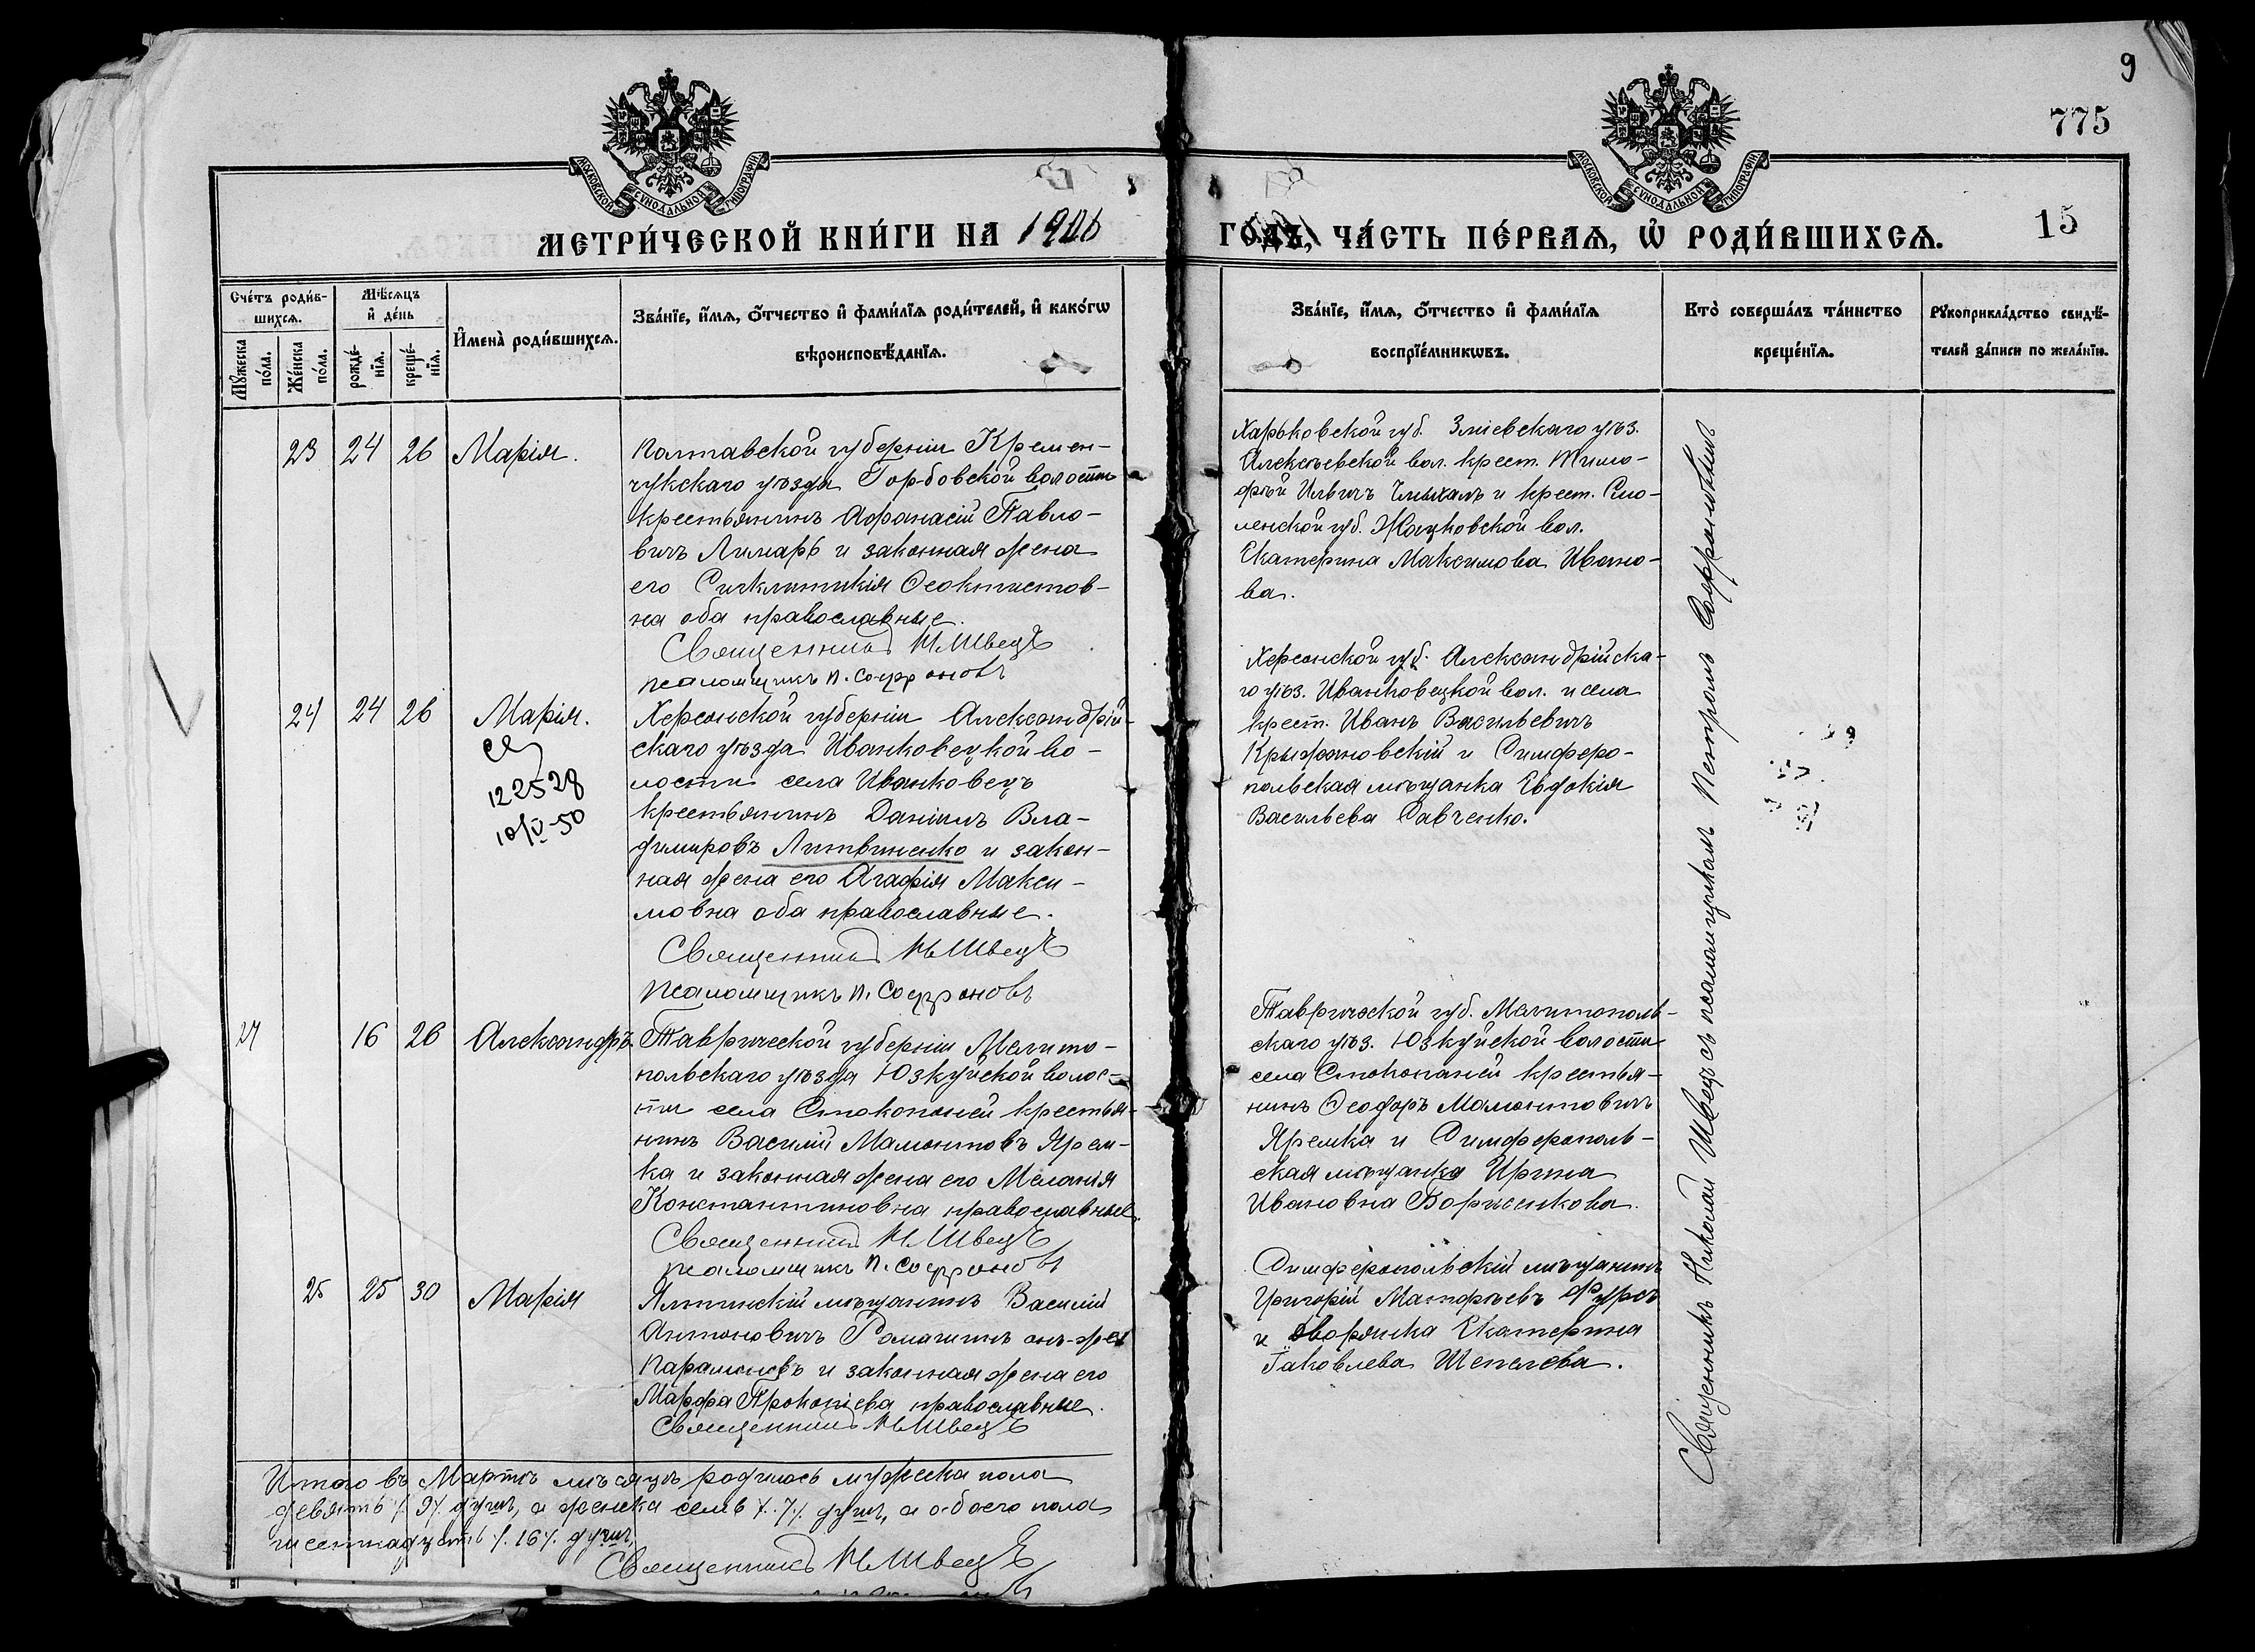 9
775
15
МОСКОВСКОЙ СѴНОДАЛЬНОЙ ТИПОГРАФІИ
МОСКОВСКОЙ СѴНОДАЛЬНОЙ ТИПОГРАФІИ
МЕТРИ́ЧЕСКОЙ КНИ́ГИ НА 1906
ГО́ДЪ, ЧА́СТЬ ПЕ́РВАѦ, Ѡ҆ РОДИ́ВШИХСѦ.
Сче́тъ роди́в-
шихсѧ.
Мꙋ́жеска по́ла.
Же́нска по́ла.
Мѣ́сѧцъ
и҆ де́нь
рожде́-нїѧ.
креще́-нїѧ.
И҆мена̀ роди́вшихсѧ.
Зва́нїе, и҆́мѧ, ѻ҆́тчество и҆ фами́лїѧ роди́телей, и҆ како́гѡ
вѣроисповѣ́данїѧ.
Зва́нїе, и҆́мѧ, ѻ҆́тчество и҆ фами́лїѧ
воспрїе́мникѡвъ.
Кто̀ соверша́лъ та́инство
креще́нїѧ.
Рꙋкоприкла́дство свидѣ́-
телей за́писи по жела́нїю.
23 24 26 Марія.
Полтавской губерніи Кремен-
чукскаго уѣзда Горбовской волости
крестьянинъ Афанасій Павло-
вичъ Лимарь и законная жена
его Сигклитикія Ѳеоктистов-
на оба православные.
Священникъ Н. Швецъ
псаломщикъ П. Софроновъ
Харьковской губ. Зміевскаго уѣз.
Алексѣевской вол. крест. Тимо-
фѣй Ильичъ и крест. Смо-
ленской губ. вол.
Екатерина Максимова Ивано-
ва.
24 24 26 Марія.
122528
10/V-50
Херсонской губерніи Александрій-
скаго уѣзда Иванковецкой во-
лости села Иванковецъ
крестьянинъ Даніилъ Вла-
димировъ Литвиненко и закон-
ная жена его Агафія Макси-
мовна оба православные.
Священникъ Н. Швецъ
псаломщикъ П. Софроновъ
Херсонской губ. Александрійска-
го уѣз. Иванковецкой вол. и села
крест. Иванъ Васильевичъ
Крыжановскій и Симферо-
польская мѣщанка Евдокія
Васильева Савченко.
27 16 26 Александръ.
Таврической губерніи Мелито-
польскаго уѣзда Юзкуйской волос-
ти села Стокопаней крестья-
нинъ Василій Мамонтовъ Ярем-
ка и законная жена его Меланія
Константиновна православные.
Священникъ Н. Швецъ
псаломщикъ П. Софроновъ
Таврической губ. Мелитополь-
скаго уѣз. Юзкуйской волости
села Стокопаней крестья-
нинъ Ѳеодоръ Мамонтовичъ
Яремка и Симферополь-
ская мѣщанка Ирина
Ивановна Борисенкова.
25 25 30 Марія
Ялтинскій мѣщанинъ Василій
Антоновичъ Ромашинъ онъ-же
Парамоновъ и законная жена его
Марфа Прокопіева православные.
Священникъ Н. Швецъ
Симферопольскій мѣщанинъ
Григорій Матфѣевъ
и дворянка Екатерина
Іаковлева Шепелева.
Священникъ Николай Швецъ съ псаломщикомъ Петромъ Софроновымъ
Итого въ Мартѣ мѣсяцѣ родилось мужеска пола
девять /. 9 /. душъ, а женска семь /. 7 /. душъ, а обоего пола
шестнадцать /. 16 /. душъ.
Священникъ Н. Швецъ